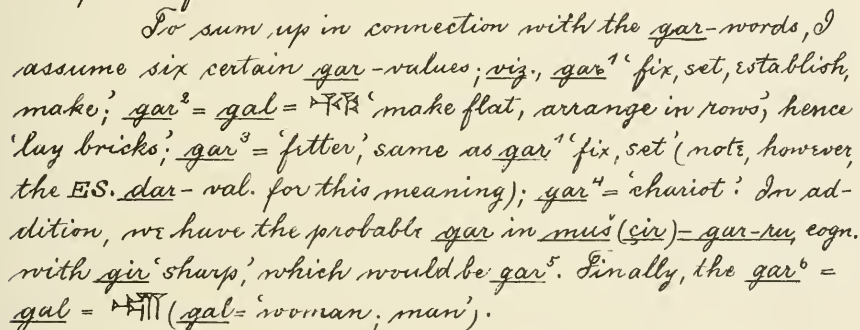 To sum up in connection with the gar-words, I
assume six certain gar-values; viz., gar¹ 'fix, set, establish,
make'; gar² = gal = 'make flat, arrange in rows', hence
'lay bricks'; gar³ = 'fetter', same as gar¹ 'fix, set' (note, however,
the ES. dar-val. for this meaning); gar⁴ = 'chariot'. In ad-
dition, we have the probable gar in muš (çir)-gar-ru, cogn.
with gir 'sharp', which would be gar⁵. Finally, the gar⁶ =
gal = (gal = 'woman; man').